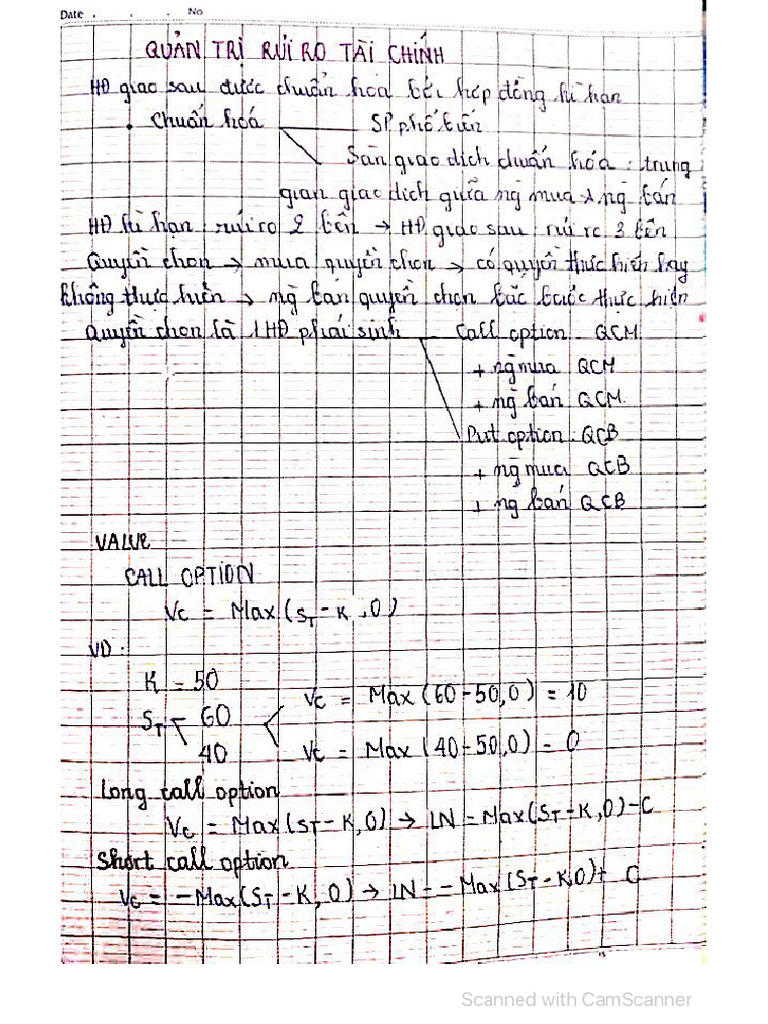 Date . . . No
QUẢN TRỊ RỦI RO TÀI CHÍNH
HĐ giao sau được chuẩn hoá bởi hợp đồng kì hạn
. Chuẩn hoá SP phổ biến
Sàn giao dịch chuẩn hóa : trung
gian giao dịch giữa ng mua & ng bán
HĐ kì hạn rủi ro 2 bên → HĐ giao sau rủi ro 3 bên
Quyền chọn → mua quyền chọn → có quyền thực hiện hay
không thực hiện → ng bán quyền chọn bắt buộc thực hiện
Quyền chọn là 1 HĐ phái sinh Call option - QCM
+ ng mua QCM
+ ng bán QCM
Put option : QCB
+ ng mua QCB
+ ng bán QCB
VALUE
CALL OPTION
Vc = Max (S_T - K , 0)
VD :
K = 50
Vc = Max (60 - 50, 0) = 10
S_T 60
40 Vc = Max (40 - 50, 0) = 0
Long call option
Vc = Max (S_T - K, 0) → LN = Max (S_T - K, 0) - C
Short call option
Vc = - Max (S_T - K, 0) → LN = - Max (S_T - K, 0) + C
Scanned with CamScanner